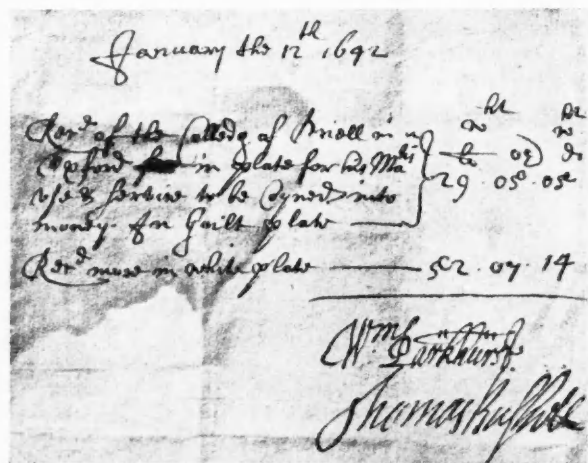 January the 12th 1642
wht wht
Recd of the Colledg of Oriell in
Oxford in plate for his Matis lb oz d
use & service to be Coyned into 29 . 05 . 05
money. In Guilt plate
Recd more in white plate 52 . 07 . 14
Wm Parkhurst
Thomas Bushell